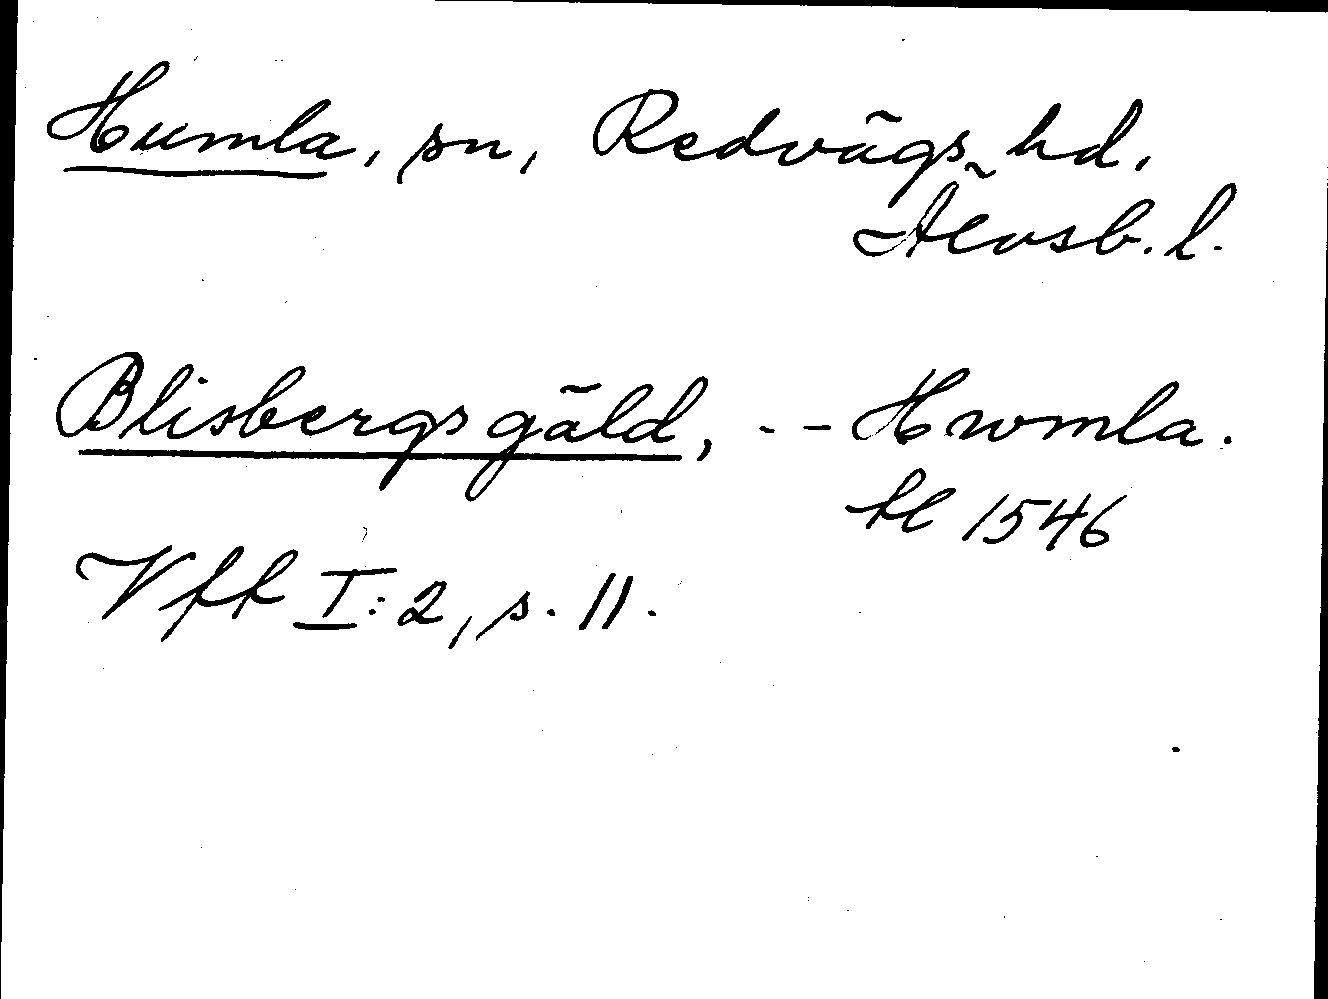 Humla, sn, Redvägs hd.
Älvsb. l.
Blisbergs gäld, -- Hwmla.
hl 1546
Vff I:2, s. 11.